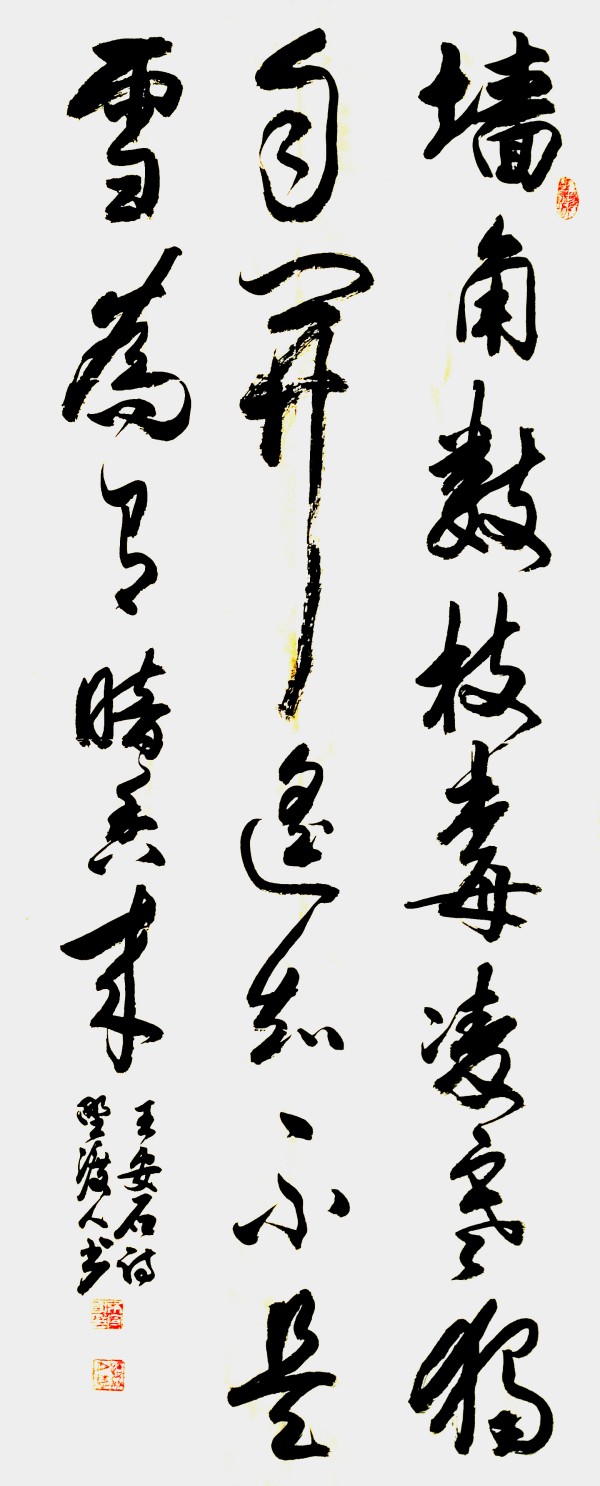 墙角数枝梅凌寒獨
自開遥知不是
雪為有暗香来
王安石诗
渡人书